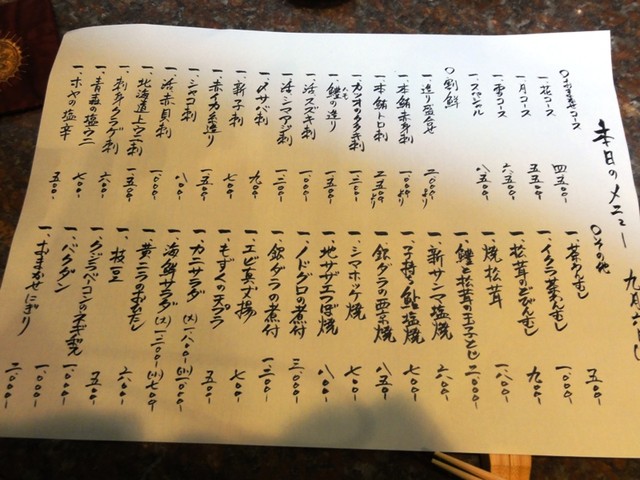 本日のメニュー 九月六日
○おまかせコース
一、花コース 四、五〇〇-
一、月コース 五、五〇〇-
一、雪コース 六、五〇〇-
一、スペシャル 八、五〇〇-
○割鮮
一、造り盛合せ 二、〇〇〇-より
一、本鮪赤身刺 一、〇〇〇-より
一、本鮪トロ刺 二、五〇〇-より
一、カツオのタタキ刺 一、二〇〇-
一、鱧の造り 一、五〇〇-
一、活スズキ刺 一、〇〇〇-
一、活シマアジ刺 一、二〇〇-
一、〆サバ刺 九〇〇-
一、新子刺 七〇〇-
一、赤イカ糸造り 一、五〇〇-
一、シャコ刺 八〇〇-
一、活赤貝刺 一、〇〇〇-
一、北海道上ウニ刺 一、五〇〇-
一、刺身クラゲ刺 一、五〇〇-
一、青森の塩ウニ 六〇〇-
一、ホヤの塩辛 五〇〇-
○その他
一、茶わんむし 五〇〇-
一、イクラ茶わんむし 一、〇〇〇-
一、松茸のどびんむし 九〇〇-
一、焼松茸 一、八〇〇-
一、鱧と松茸の玉子とじ 二、〇〇〇-
一、新サンマ塩焼 六〇〇-
一、子持ち鮎塩焼 七〇〇-
一、銀ダラの西京焼 八五〇-
一、シマホッケ焼 七〇〇-
一、地サザエつぼ焼 八〇〇-
一、ノドグロの煮付 三、〇〇〇-
一、銀ダラの煮付 一、二〇〇-
一、エビ真丈揚 七〇〇-
一、もずくの天プラ 五〇〇-
一、カニサラダ (大)一、八〇〇-(小)一、〇〇〇-
一、海鮮サラダ (大)一、二〇〇-(小)七〇〇-
一、黄ニラのおひたし 六〇〇-
一、枝豆 五〇〇-
一、クジラベーコンのネギポン 一、〇〇〇-
一、バクダン 一、〇〇〇-
一、おまかせにぎり 二、〇〇〇-